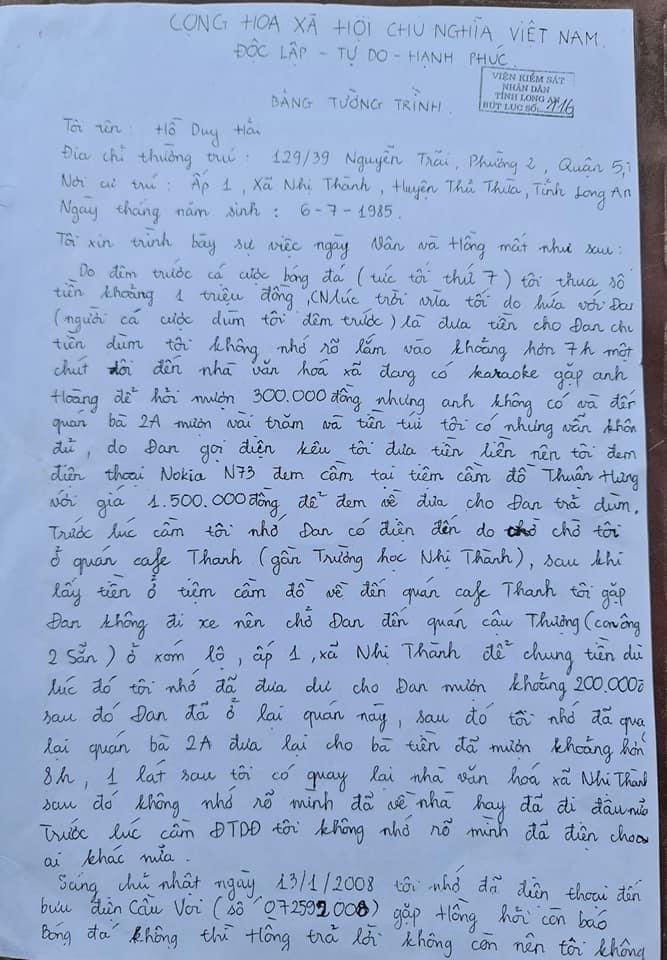 CỘNG HOA XÃ HỘI CHU NGHĨA VIỆT NAM.
ĐỘC LẬP - TỰ DO - HẠNH PHÚC.
VIỆN KIỂM SÁT
NHÂN DÂN
TỈNH LONG AN
BÚT LỤC SỐ:
BẢNG TƯỜNG TRÌNH.
Tôi tên: Hồ Duy Hải
Địa chỉ thường trú: 129/39 Nguyễn Trãi, Phường 2, Quận 5,
Nơi cư trú: Ấp 1, Xã Nhị Thành, Huyện Thủ Thừa, Tỉnh Long An
Ngày tháng năm sinh: 6-7-1985.
Tôi xin trình bày sự việc ngày Vân và Hồng mất như sau:
Do đêm trước cá cược bóng đá (tức tối thứ 7) tôi thua số
tiền khoảng 1 triệu đồng, CN lúc trời vừa tối do hứa với Đan
(người cá cược dùm tôi đêm trước) là đưa tiền cho Đan chi
tiền dùm tôi không nhớ rõ lắm vào khoảng hơn 7h một
chút tôi đến nhà văn hoá xã đang có karaoke gặp anh
Hoàng để hỏi mượn 300.000 đồng nhưng anh không có và đến
quán bà 2A mượn vài trăm và tiền túi tôi có nhưng vẫn không
đủ, do Đan gọi điện kêu tôi đưa tiền liền nên tôi đem
điện thoại Nokia N73 đem cầm tại tiệm cầm đồ Thuân Hưng
với giá 1.500.000 đồng để đem về đưa cho Đan trả dùm.
Trước lúc cầm tôi nhớ Đan có điện đến do chờ tôi
ở quán cafe Thanh (gần Trường học Nhị Thành), sau khi
lấy tiền ở tiệm cầm đồ về đến quán cafe Thanh tôi gặp
Đan không đi xe nên chở Đan đến quán cậu Thượng (con ông
2 Sẵn) ở xóm lộ, ấp 1, xã Nhị Thành để chung tiền dù
lúc đó tôi nhớ đã đưa dư cho Đan mượn khoảng 200.000đ
sau đó Đan đã ở lại quán này, sau đó tôi nhớ đã qua
lại quán bà 2A đưa lại cho bà tiền đã mượn khoảng hơn
8h, 1 lát sau tôi có quay lại nhà văn hoá xã Nhị Thành
sau đó không nhớ rõ mình đã về nhà hay đã đi đâu nữa
Trước lúc cầm ĐTDĐ tôi không nhớ rõ mình đã điện cho
ai khác nữa.
Sáng chủ nhật ngày 13/1/2008 tôi nhớ đã điện thoại đến
bưu điện Cầu Voi (số 072592008) gặp Hồng hỏi còn báo
Bóng đá không thì Hồng trả lời không còn nên tôi không